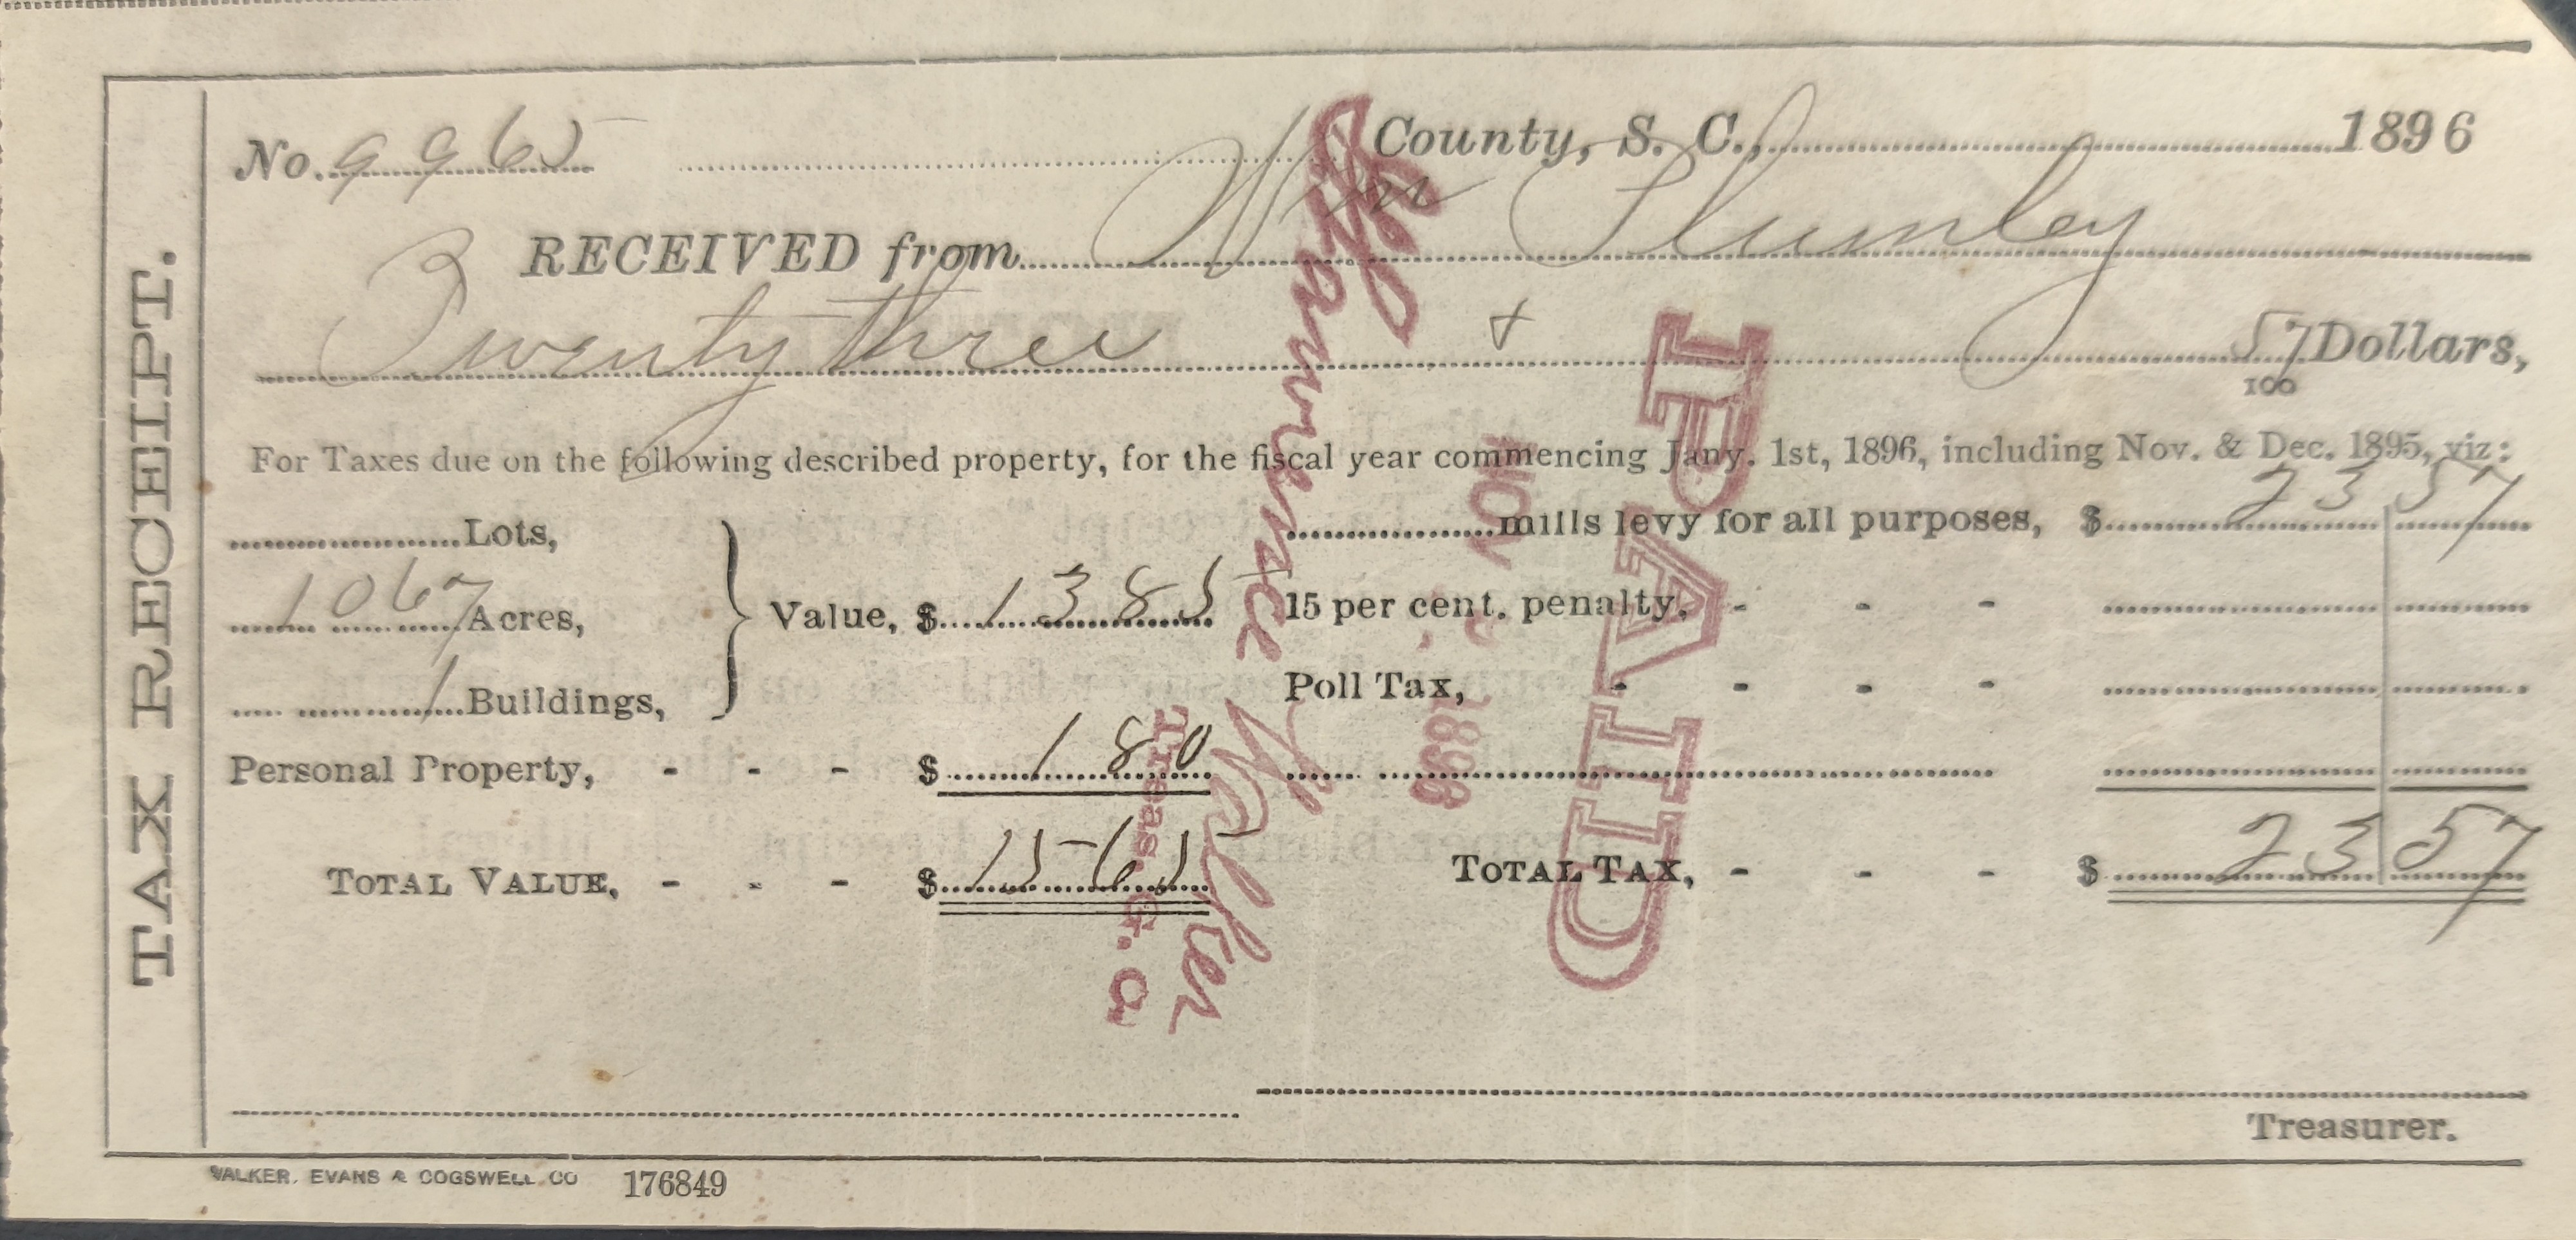 TAX RECEIPT.
No. 9965 County, S. C., 1896
RECEIVED from Wm Plumley
Twenty three & 57/100 Dollars,
For Taxes due on the following described property, for the fiscal year commencing Jany. 1st, 1896, including Nov. & Dec. 1895, viz:
Lots,
1067 Acres,
1 Buildings,
Value, $ 1385
Personal Property, - - - $ 180
TOTAL VALUE, - - - $ 1565
mills levy for all purposes, $ 23 57
15 per cent. penalty, - - -
Poll Tax, - - - -
TOTAL TAX, - - - $ 23 57
Treasurer.
WALKER, EVANS & COGSWELL CO 176849
Walker
Treas. G. C.
PAID
NOV
1896